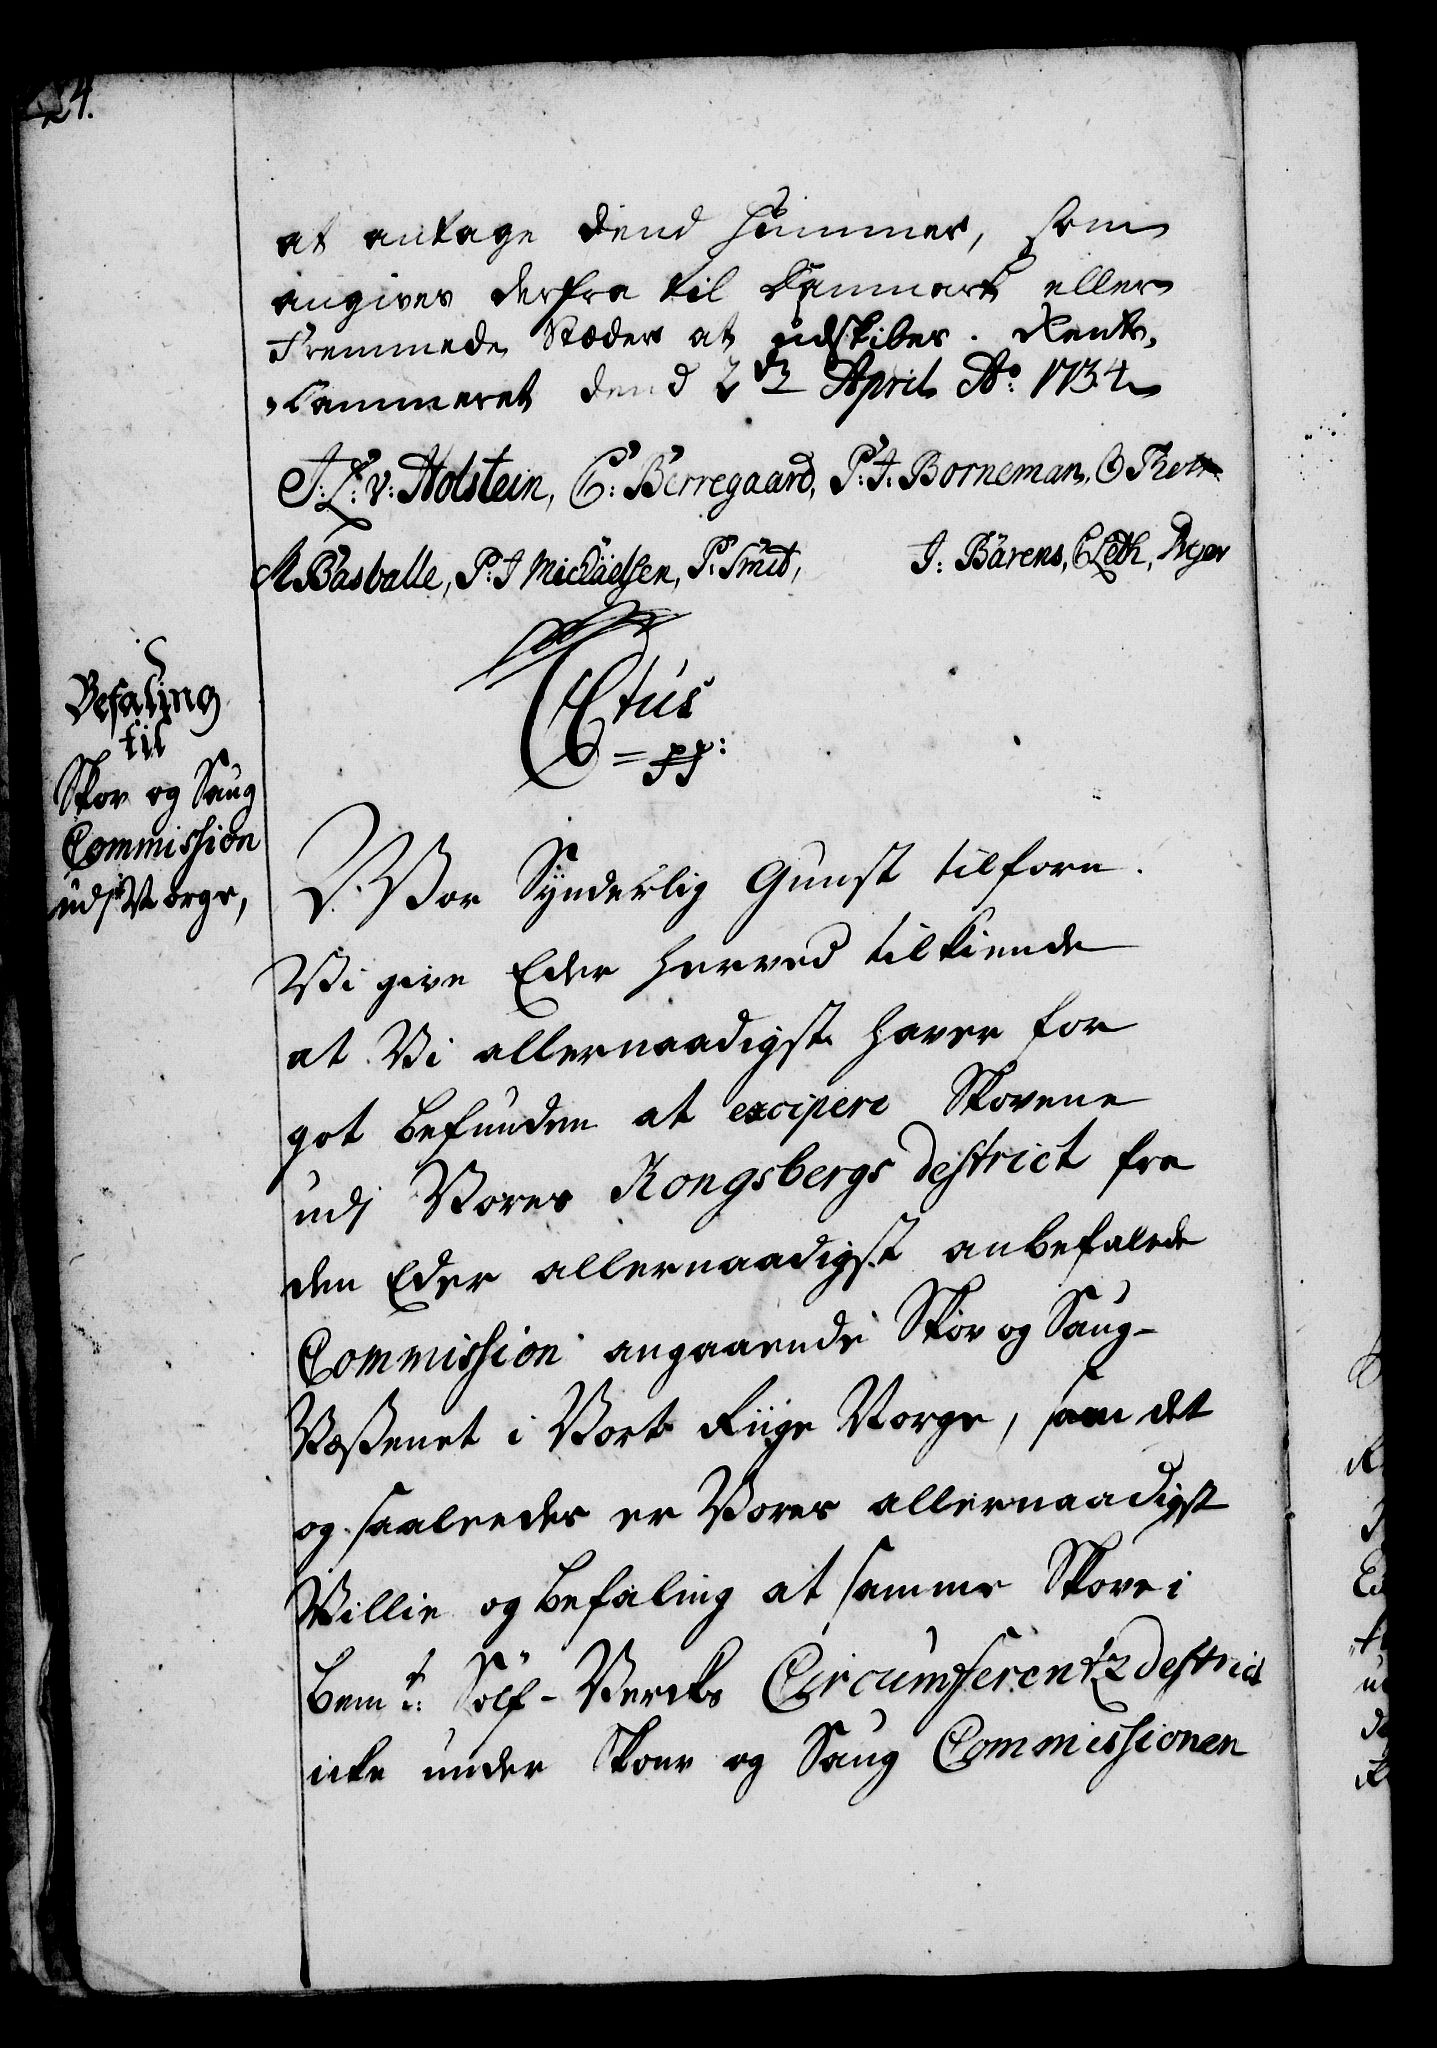 24.
at antage dend Hummer, som
angives derfra til Danmark eller
Fremmede Stæder at udskibes. Rente-
Cammeret dend 2de April Ao: 1734
J: L: v: Holstein, C: Berregaard, P: J: Borneman,
M Basballe, P: J Michaelsen, P: Smit, J: Bärens, C Leth,
Befaling
til
Skov og Saug
Commission
udj Norge,
CC6tus
= pp:
V. Vor Synderlig Gunst tilforn.
Vi give Eder herved tilkiende
at Vi allernaadigst haver for
got befunden at excipere Skovene
udj Vores Kongsbergs destrict fra
den Eder allernaadigst anbefalede
Commission angaaende Skov og Saug-
Væssenet i Vort Riige Norge, som det
og saaleedes er Vores allernaadigst
Villie og befaling at samme Skove i
bemt: Sölf-Vercks Circumferentz destrict
icke under Skov og Saug Commissionen